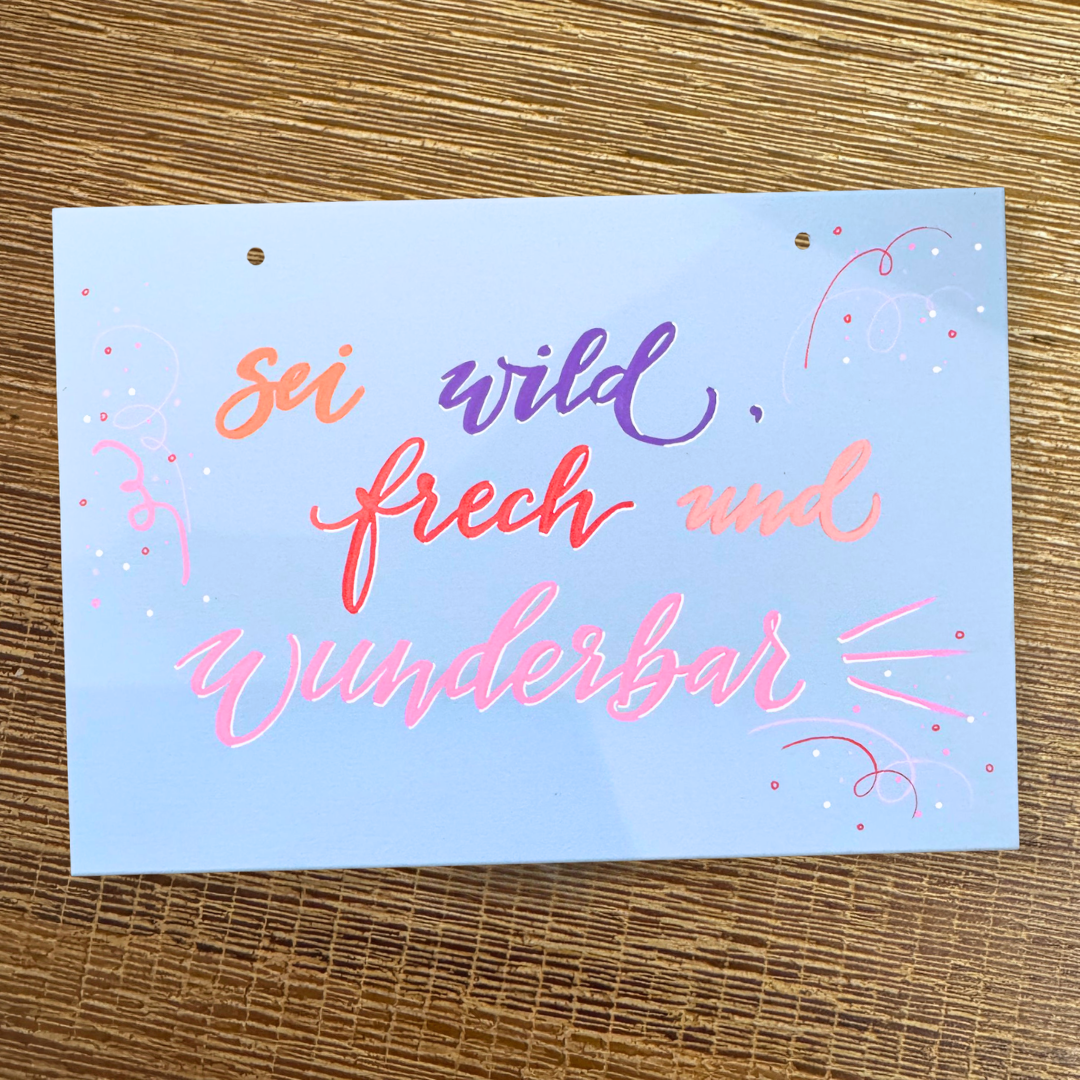 sei wild,
frech und
wunderbar